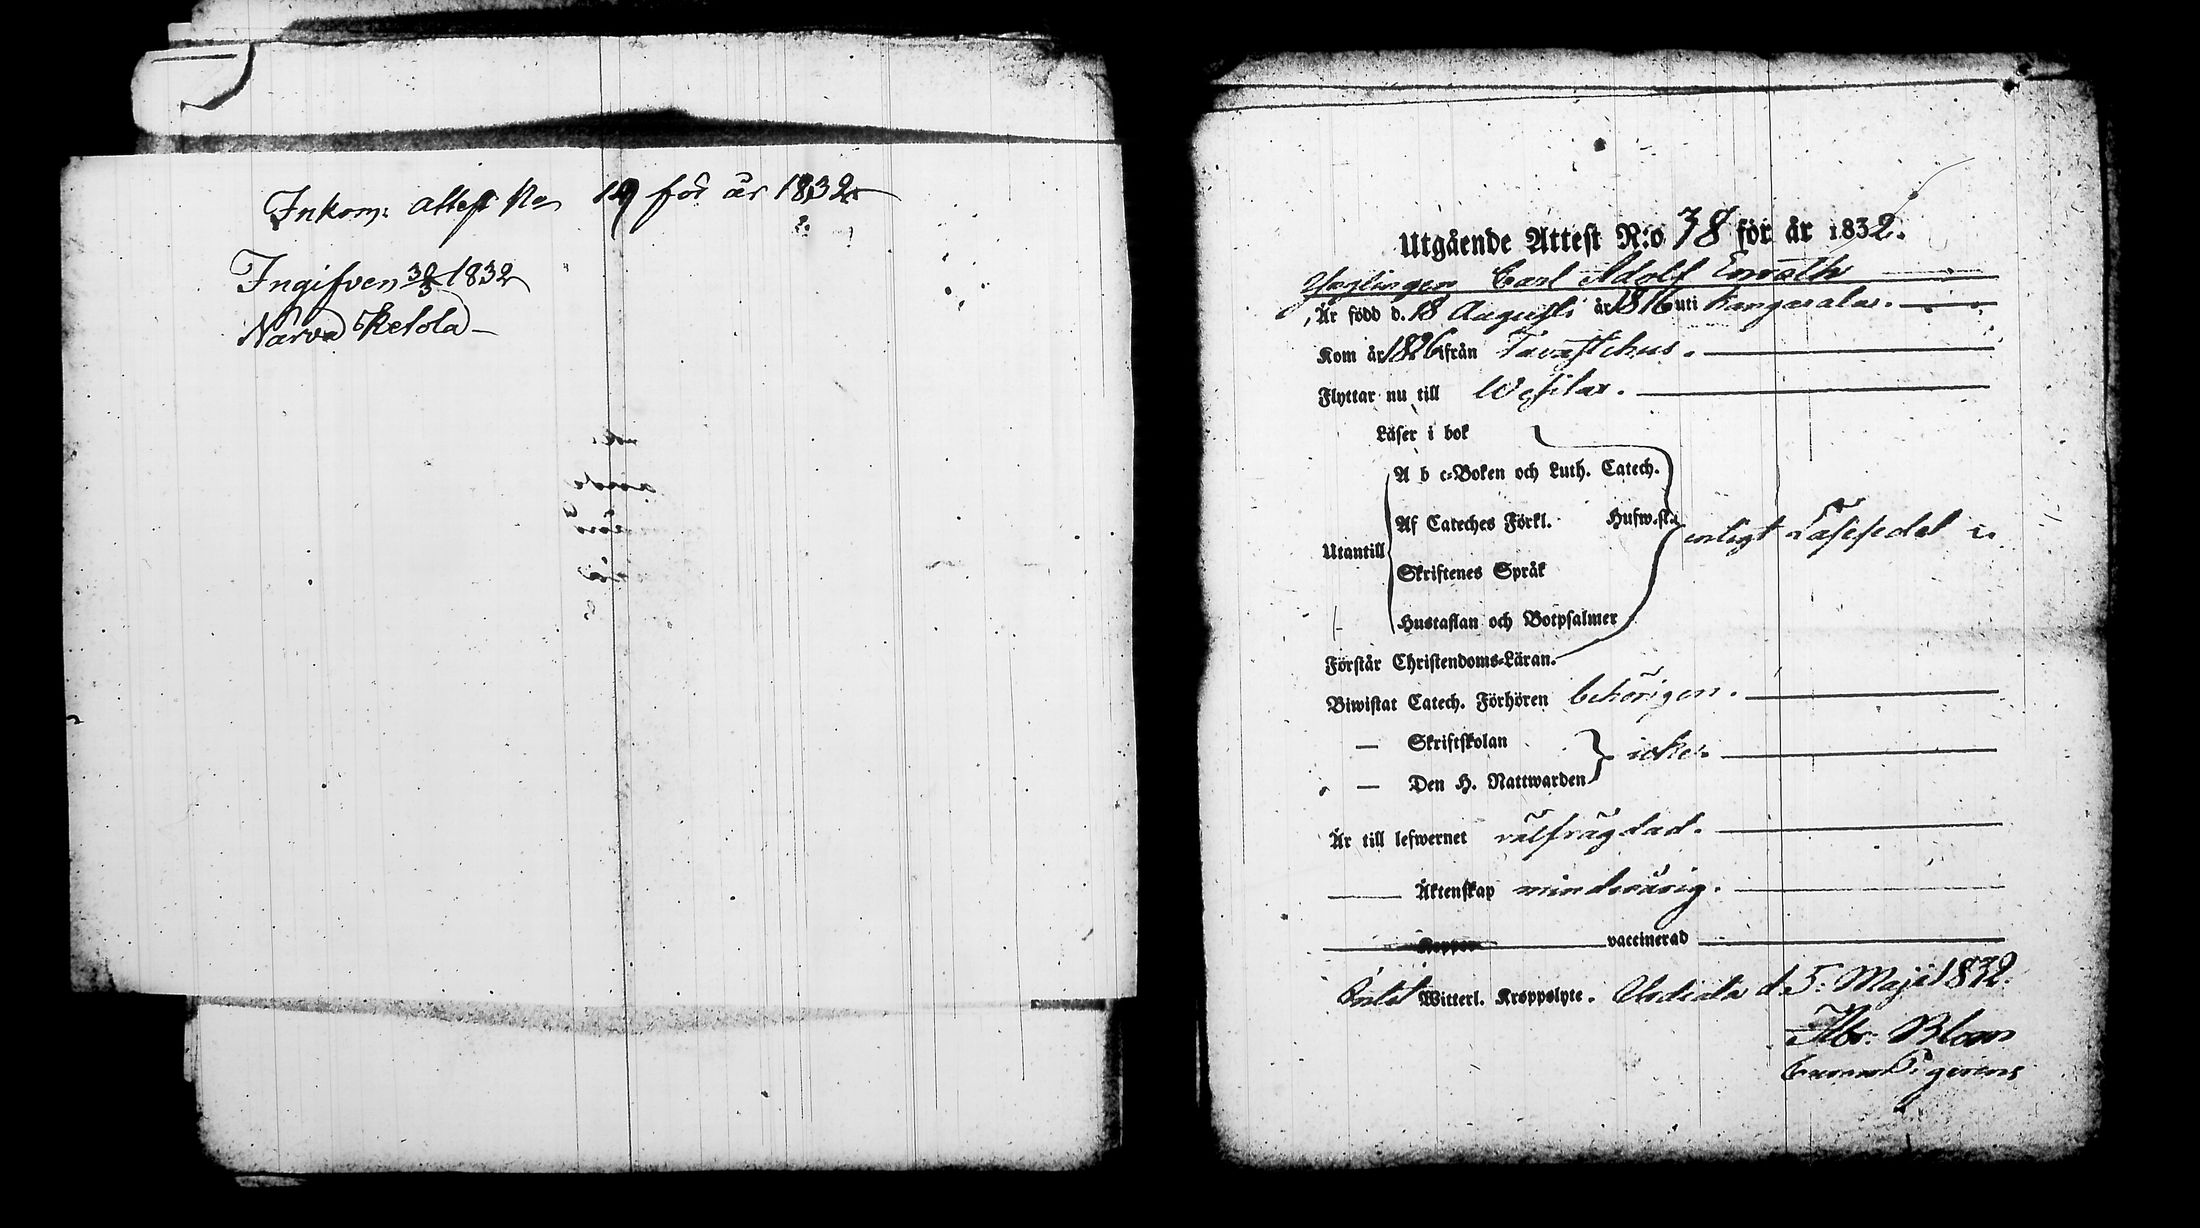 Inkom: attest No 19 för år 1832
Ingifven 3/3 1832
Narva Ketola
Utgående Attest N:o 78 för år 1832.
Ynglingen Carl Adolf
Är född d. 18 Augusti år 1816 uti Kangasala.
Kom år 1826 ifrån Tavastehus.
Flyttar nu till Wesilax.
Läser i bok
A b c-Boken och Luth. Catech.
Af Cateches Förkl. Hufwst.
Utantill
enligt Lässedel
Skriftenes Språk
Hustaflan och Botpsalmer
Förstår Christendoms-Läran.
Biwistat Catech. Förhören behörigen.
— Skriftskolan
icke
— Den H. Nattwarden
Är till lefwernet välfrägdad.
Äktenskap minderårig.
Koppor vaccinerad
Witterl. Kroppslyte. Urdiala d. 5. Maji 1832.
Abr. Blom